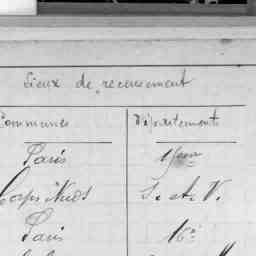 Lieux de recensement
Communes Départements
Paris
Corps Nuds I. et. V.
Paris 16e